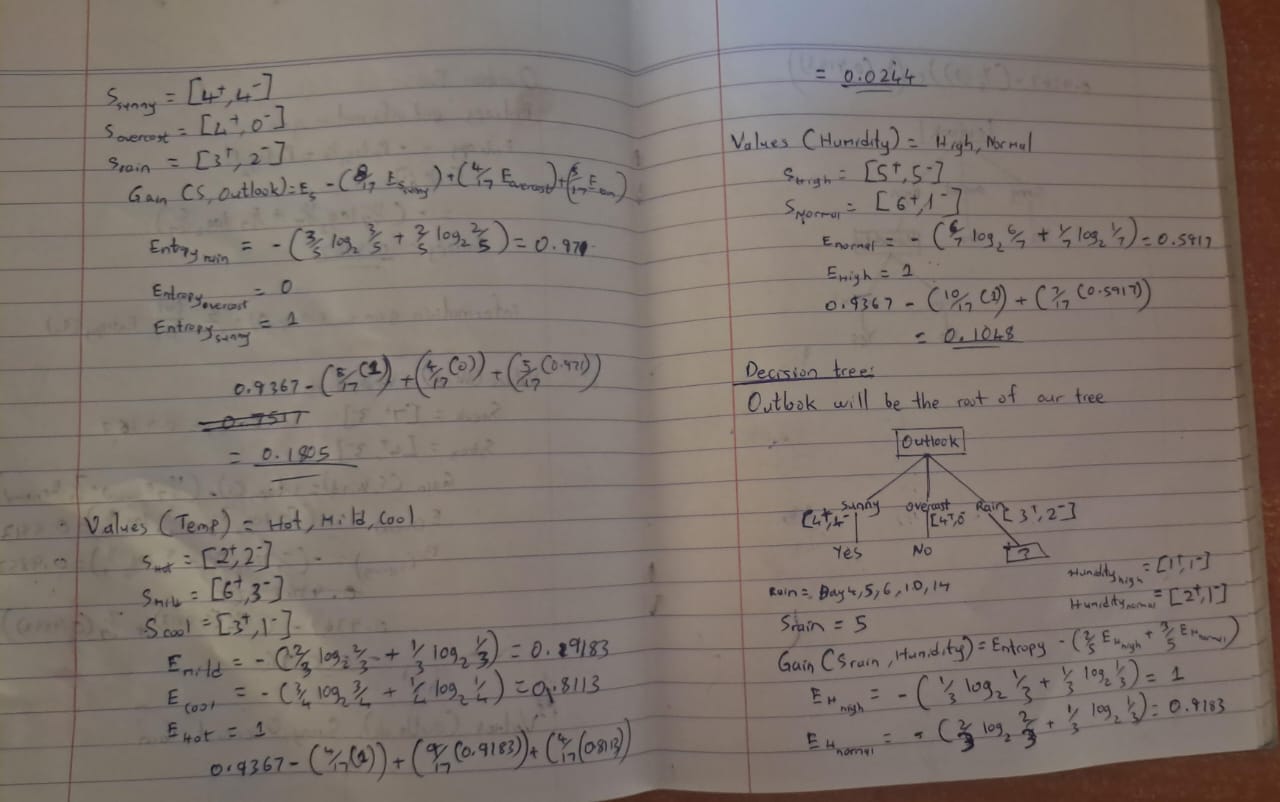 S_sunny = [4⁺, 4⁻]
S_overcast = [4⁺, 0⁻]
S_rain = [3⁺, 2⁻]
Gain (S, Outlook) = E_S - (8/17 E_sunny) + (4/17 E_overcast) + (5/17 E_rain)
Entropy_rain = - (3/5 log₂ 3/5 + 2/5 log₂ 2/5) = 0.971
Entropy_overcast = 0
Entropy_sunny = 1
0.9367 - (8/17 (1)) + (4/17 (0)) + (5/17 (0.971))
= 0.1805
Values (Temp) = Hot, Mild, Cool
S_Hot = [2⁺, 2⁻]
S_Mild = [6⁺, 3⁻]
S_Cool = [3⁺, 1⁻]
E_mild = - (2/3 log₂ 2/3 + 1/3 log₂ 1/3) = 0.9183
E_cool = - (3/4 log₂ 3/4 + 1/4 log₂ 1/4) = 0.8113
E_Hot = 1
0.9367 - (4/17 (1)) + (9/17 (0.9183)) + (4/17 (0.8113))
= 0.0244
Values (Humidity) = High, Normal
S_High = [5⁺, 5⁻]
S_Normal = [6⁺, 1⁻]
E_normal = - (6/7 log₂ 6/7 + 1/7 log₂ 1/7) = 0.5917
E_High = 1
0.9367 - (10/17 (1)) + (7/17 (0.5917))
= 0.1048
Decision tree:
Outlook will be the root of our tree
Outlook
Sunny overcast Rain
[4⁺, 4⁻ [4⁺, 0⁻ [3⁺, 2⁻]
Yes No ?
Humidity_high = [1⁺, 1⁻]
Rain = Day 4, 5, 6, 10, 14
Humidity_normal = [2⁺, 1⁻]
S_rain = 5
Gain (S_rain, Humidity) = Entropy - (2/5 E_H_high + 3/5 E_H_normal)
E_H_high = - (1/3 log₂ 1/3 + 1/3 log₂ 1/3) = 1
E_H_normal = - (2/3 log₂ 2/3 + 1/3 log₂ 1/3) = 0.9183